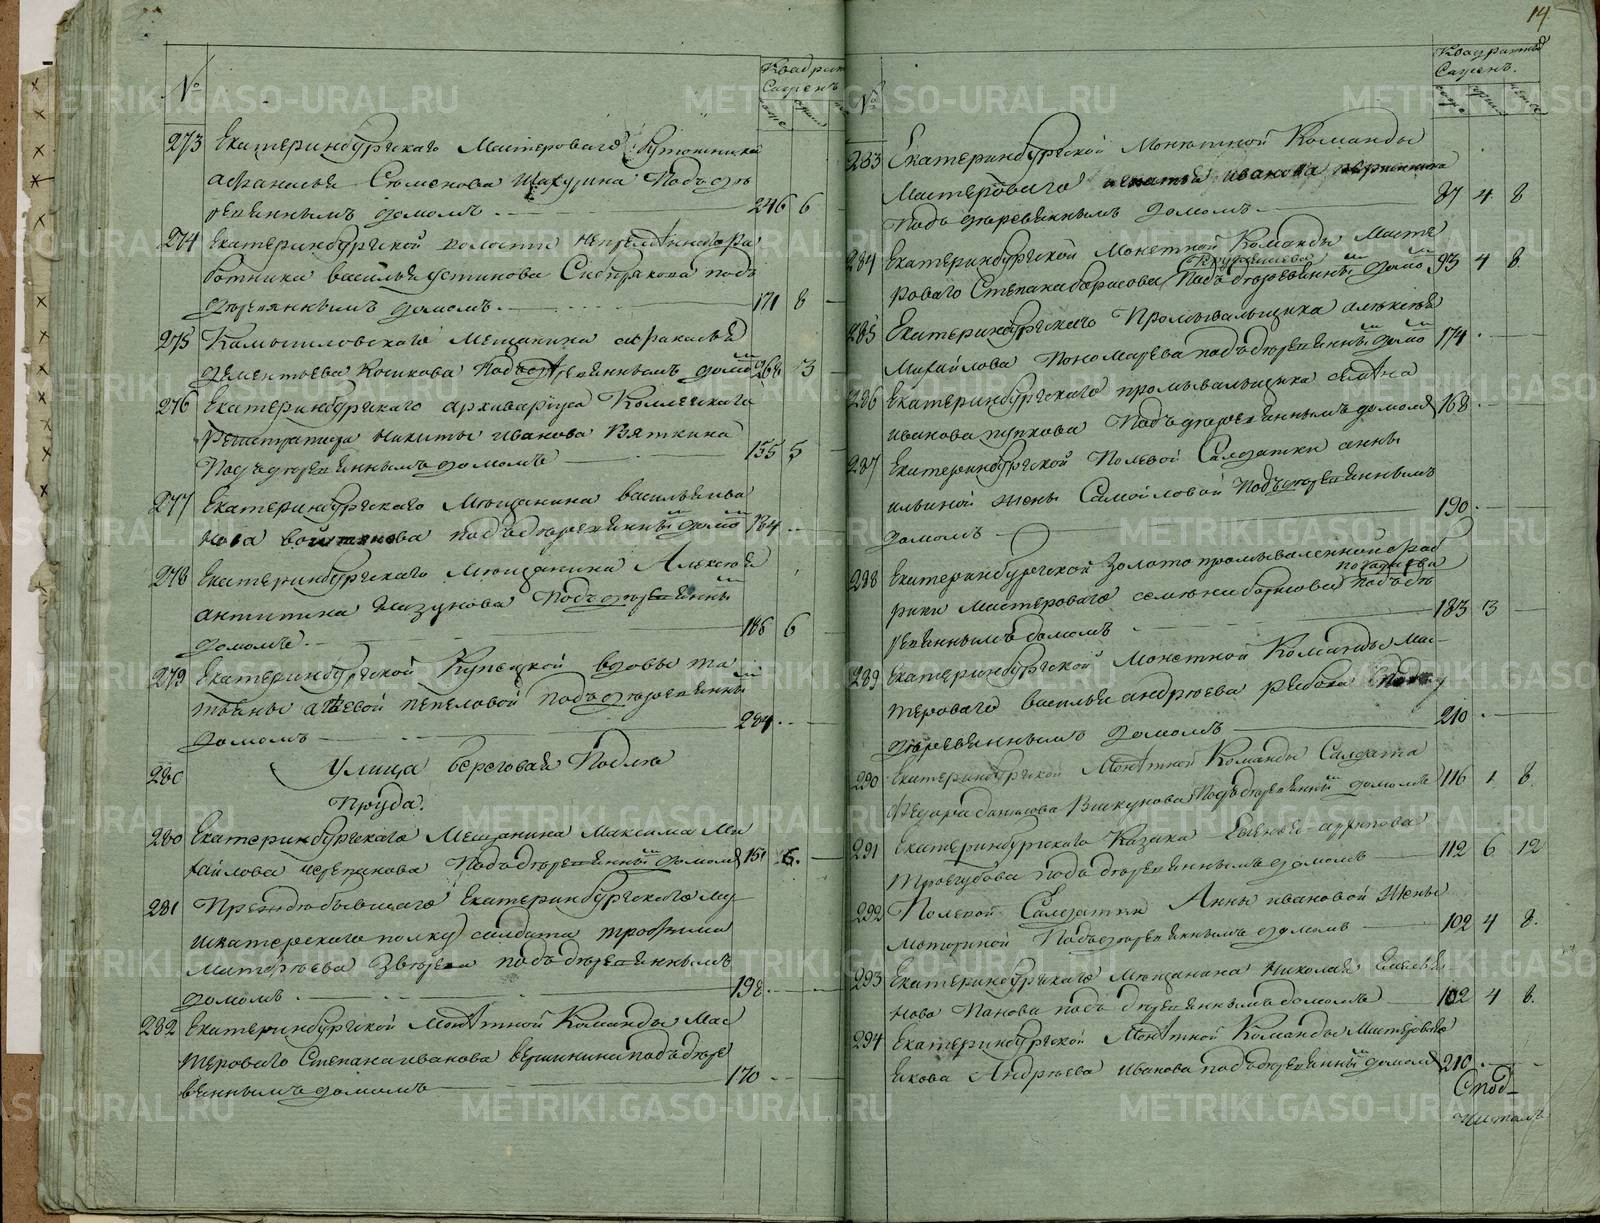 14
№
Квадрат
Сажень
273 Екатеринбургскаго Мастероваго
Афанасья Семенова Шакурина Подъ де
ревяннымъ домомъ. 246 6
274 Екатеринбургской волости непременного ра
ботника василья устинова Сибирякова подъ
деревяннымъ домомъ. 171 8
275 Камышловскаго Мещанина афанасья
дементьева Косикова Подъ деревяннымъ домо 268 3
276 Екатеринбургскаго архиваріуса Коллежскаго
Регистратора никиты иванова Вяткина
Подъ деревяннымъ домомъ 155 5
277 Екатеринбургскаго Мещанина василья ива
нова подъ деревянны домо 184
278 Екатеринбургскаго Мещанина Алексея
антипина Мизунова Подъ деревянны
домомъ. 186 6
279 Екатеринбургской Купецкой вдовы та
тьяны Пепеловой подъ деревянны
домомъ 294
280 Улица береговая Подле
Пруда.
280 Екатеринбургскаго Мещанина Максима Ми
хайлова черепанова Подъ деревянны домом 151 6.
281 Преждебывшаго Екатеринбургскаго му
шкатерскаго полку солдата трофима
Матфеева Зверева подъ деревяннымъ
домомъ. 198
282 Екатеринбургской Монетной Команды Мас
тероваго Степана иванова вершинина подъ дере
вяннымъ домомъ 170
№
Квадратны
Сажень.
283 Екатеринбургской Монетной Команды
Мастероваго игнатья иванова
Подъ деревяннымъ домомъ 87 4 8
284 Екатеринбургской Монетной Команды Масте
роваго Степана барасова Подъ деревянны домо 93 4 8
285 Екатеринбургскаго Промывальщика алексея
Михайлова Пономарева подъ деревянны домо 174
286 Екатеринбургскаго промывальщика семена
иванова пупкова Подъ деревяннымъ домом 168
287 Екатеринбургской Полевой Салдатки анны
ильиной жены Самойловой Подъ деревяннымъ
домомъ 190
288 Екатеринбургской Золотопромываленной фаб
рики Мастероваго семена борисова подъ де
ревяннымъ домомъ 183 3
289 Екатеринбургской Монетной Команды Мас-
тероваго василья андреева рябова Подъ
деревяннымъ домомъ 210
290 Екатеринбургской Монетной Команды Салдата
Федора данилова Вискунова Подъ деревянны домомъ 116 1 8.
291 Екатеринбургскаго Казака
Трегубова подъ деревяннымъ домомъ 112 6 12
292 Полевой Салдатки Анны ивановой жены
Моториной Подъ деревяннымъ домомъ 102 4 8.
293 Екатеринбургскаго Мещанина Николая Емелья
нова Панова подъ деревяннымъ домомъ 102 4 8.
294 Екатеринбургской Монетной Команды Мастероваго
Якова Андреева иванова подъ деревянны домом 210
METRIKI.GASO-URAL.RU